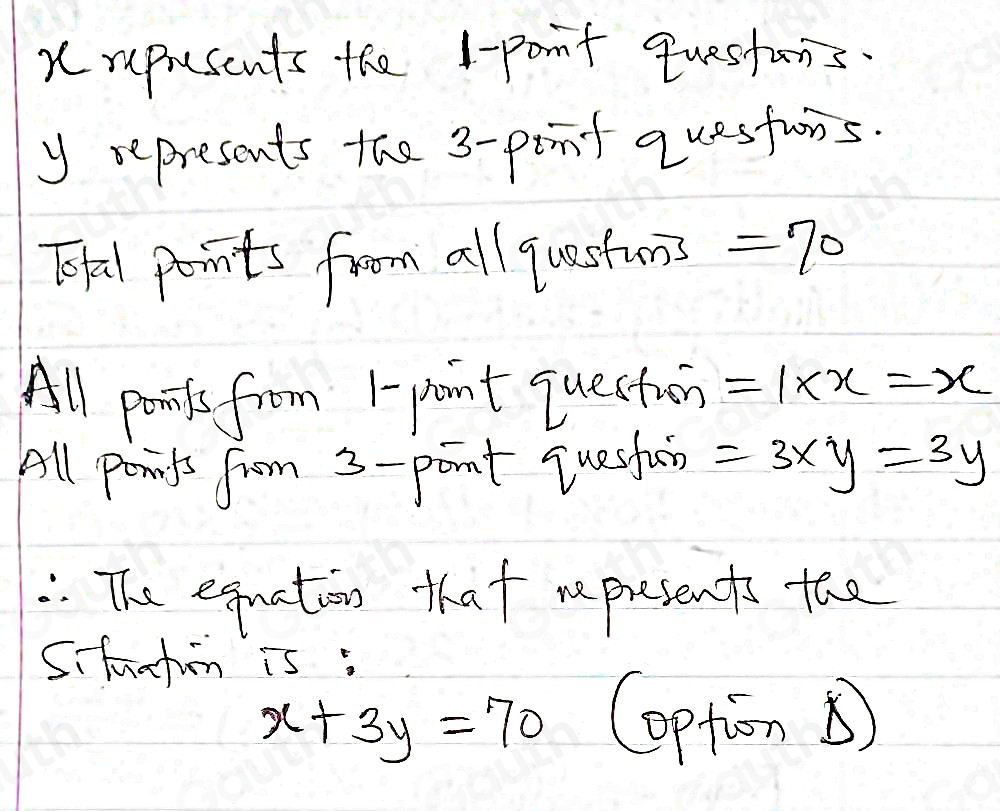 x represents the 1-point questions.
y represents the 3-point questions.
Total points from all questions = 70
All points from 1-point question = 1×x = x
All points from 3-point question = 3×y = 3y
∴ The equation that represents the
Situation is :
x + 3y = 70 (option D)